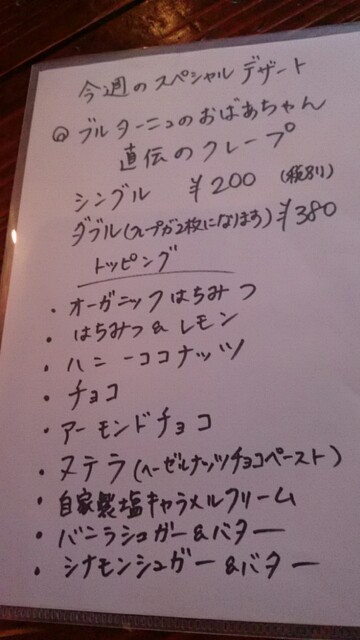 今週のスペシャルデザート
◎ ブルターニュのおばあちゃん
直伝のクレープ
シングル ¥200 (税別)
ダブル(クレープが2枚になります) ¥380
トッピング
・オーガニックはちみつ
・はちみつ&レモン
・ハニーココナッツ
・チョコ
・アーモンドチョコ
・ヌテラ(ヘーゼルナッツチョコペースト)
・自家製塩キャラメルクリーム
・バニラシュガー&バター
・シナモンシュガー&バター